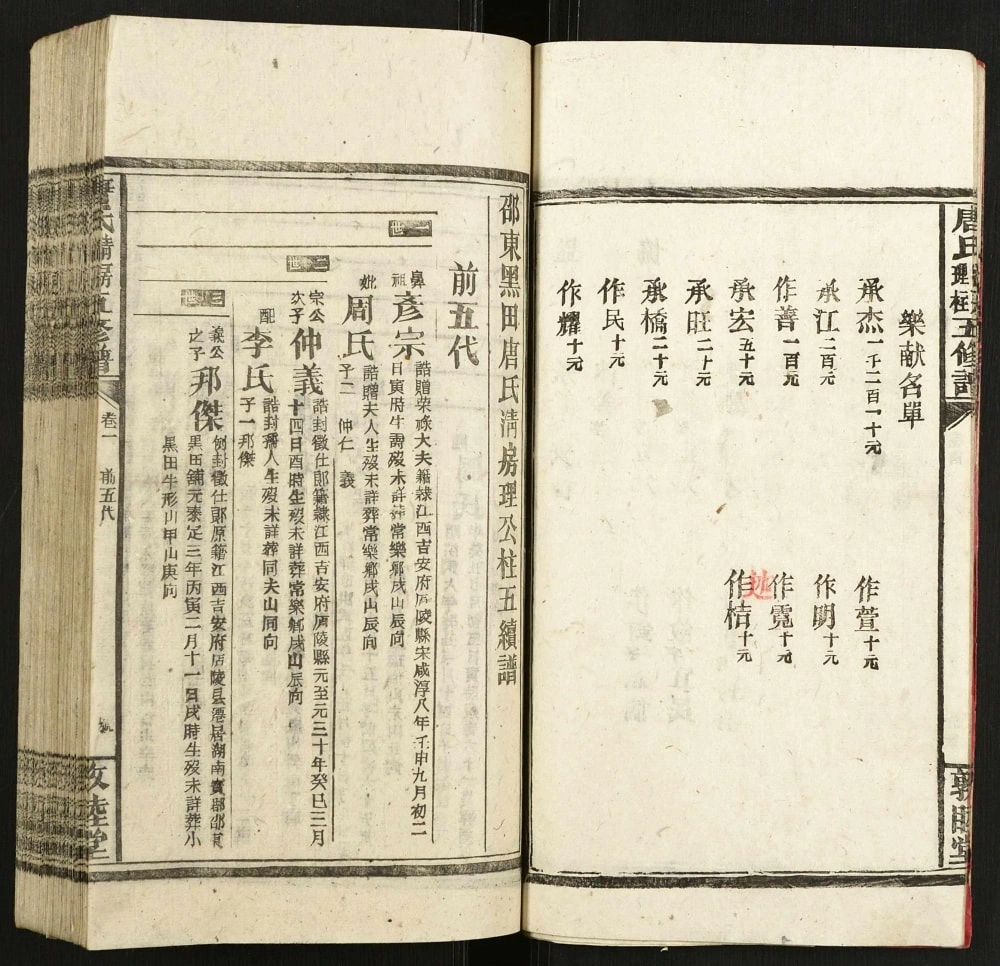 樂献名單
承杰一千二百一十元
承江二百元
作善一百元
承宏五十元
承旺二十元
承橋二十元
作民十元
作耀十元
作萱十元
作明十元
作霓十元
作桔十元
敦睦堂
邵東黑田唐氏清房理公柱五續譜
前五代
一世
鼻祖彥宗誥贈荣祿大夫籍隸江西吉安府庐陵縣宋咸淳八年壬申九月初二
日寅時生壽殁未詳葬常樂鄉戌山辰向
妣周氏誥贈夫人生殁未詳葬常樂鄉戌山辰向
子二 仲仁 義
二世
宗公次子仲義誥封徵仕郎籍隸江西吉安府庐陵縣元至元三十年癸巳三月
十四日酉時生殁未詳葬常樂鄉戌山辰向
配李氏誥封孺人生殁未詳葬同夫山同向
子一邦傑
三世
義公之子邦傑例封徵仕郎原籍江西吉安府庐陵县遷居湖南寶郡邵東
黑田舖元泰定三年丙寅二月十一日戌時生殁未詳葬小
黑田牛形山甲山庚向
唐氏清房五修譜
卷一
前五代
敦睦堂